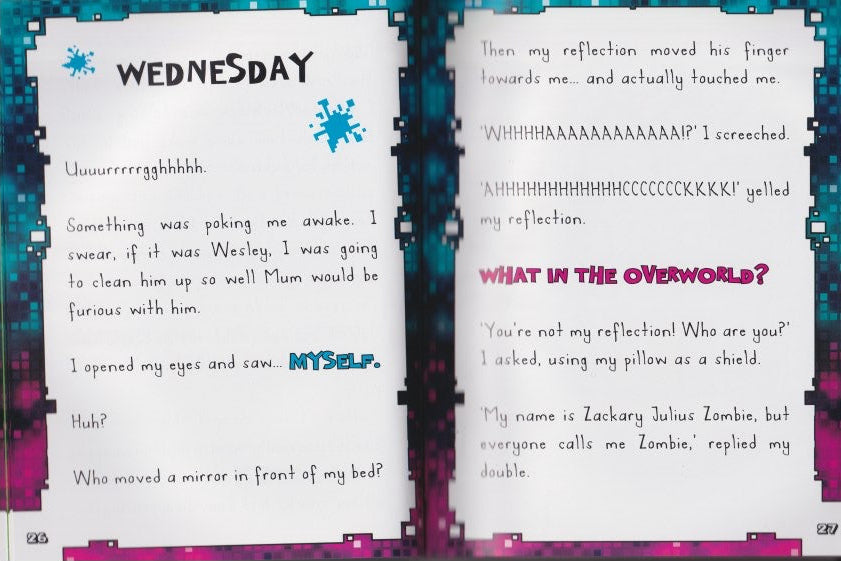 WEDNESDAY
Uuuurrrrrgghhhhh.
Something was poking me awake. I
swear, if it was Wesley, I was going
to clean him up so well Mum would be
furious with him.
I opened my eyes and saw... MYSELF.
Huh?
Who moved a mirror in front of my bed?
26
Then my reflection moved his finger
towards me... and actually touched me.
'WHHHHAAAAAAAAAAAA!?' I screeched.
'AHHHHHHHHHHHHCCCCCCCKKKK!' yelled
my reflection.
WHAT IN THE OVERWORLD?
'You're not my reflection! Who are you?'
I asked, using my pillow as a shield.
'My name is Zackary Julius Zombie, but
everyone calls me Zombie,' replied my
double.
27